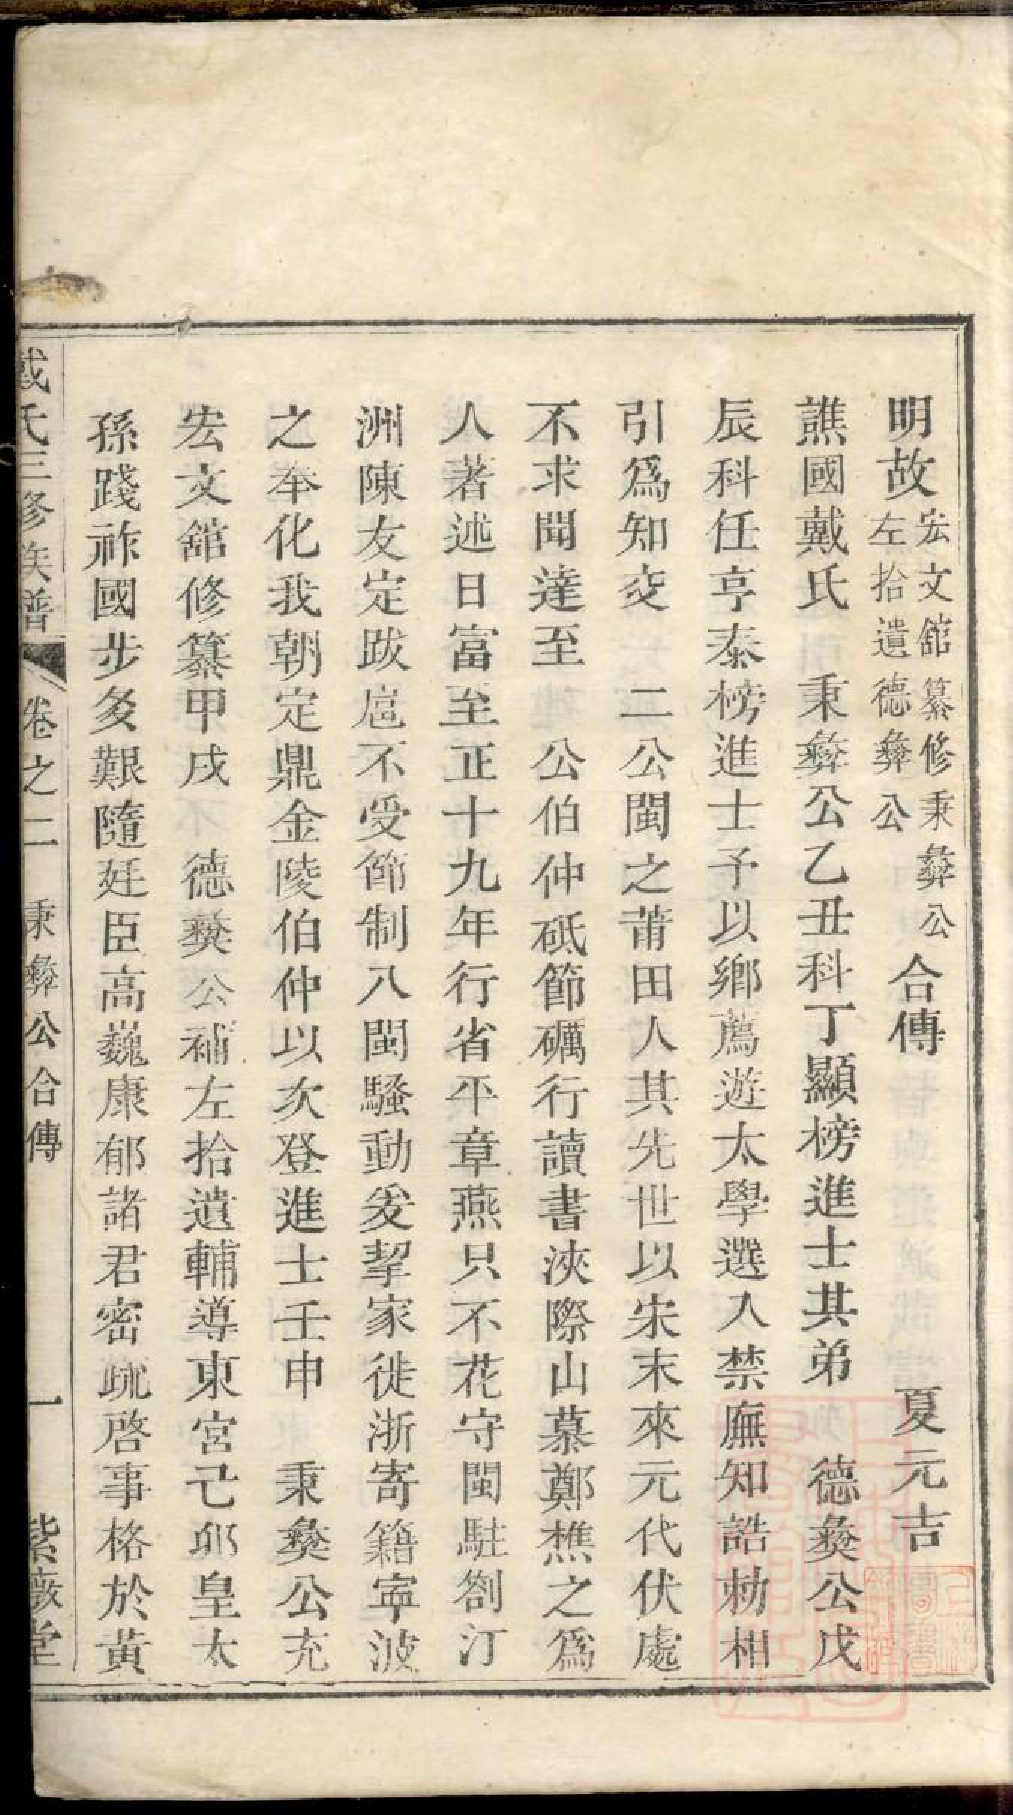 明故宏文舘纂修秉彝公左拾遺德彝公合傳 夏元吉
譙國戴氏秉彝公乙丑科丁顯榜進士其弟 德彝公戊
辰科任亨泰榜進士予以鄉薦遊太學選入禁廡知誥勅相
引爲知交 二公閩之莆田人其先世以宋末來元代伏處
不求聞達至 公伯仲砥節礪行讀書浹際山慕鄭樵之爲
人著述日富至正十九年行省平章燕只不花守閩駐劄汀
洲陳友定跋扈不受節制八閩騷動爰挈家徙浙寄籍寧波
之奉化我朝定鼎金陵伯仲以次登進士壬申 秉彝公充
宏文舘修纂甲戌 德彝公補左拾遺輔導東宮己夘皇太
孫踐祚國步多艱隨廷臣高巍康郁諸君密疏啓事格於黃
戴氏三修族譜 卷之二 秉彝公合傳 一 紫薇堂